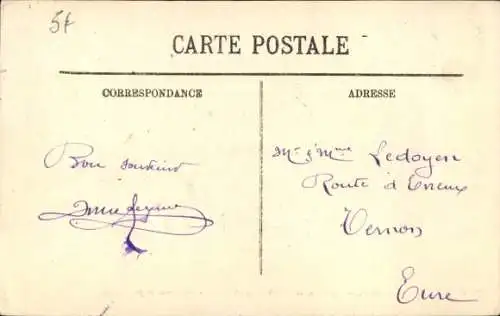 5f
CARTE POSTALE
CORRESPONDANCE
ADRESSE
Bon souvenir
Mr & Mme Ledoyen
Route d'Evreux
Vernon
Eure